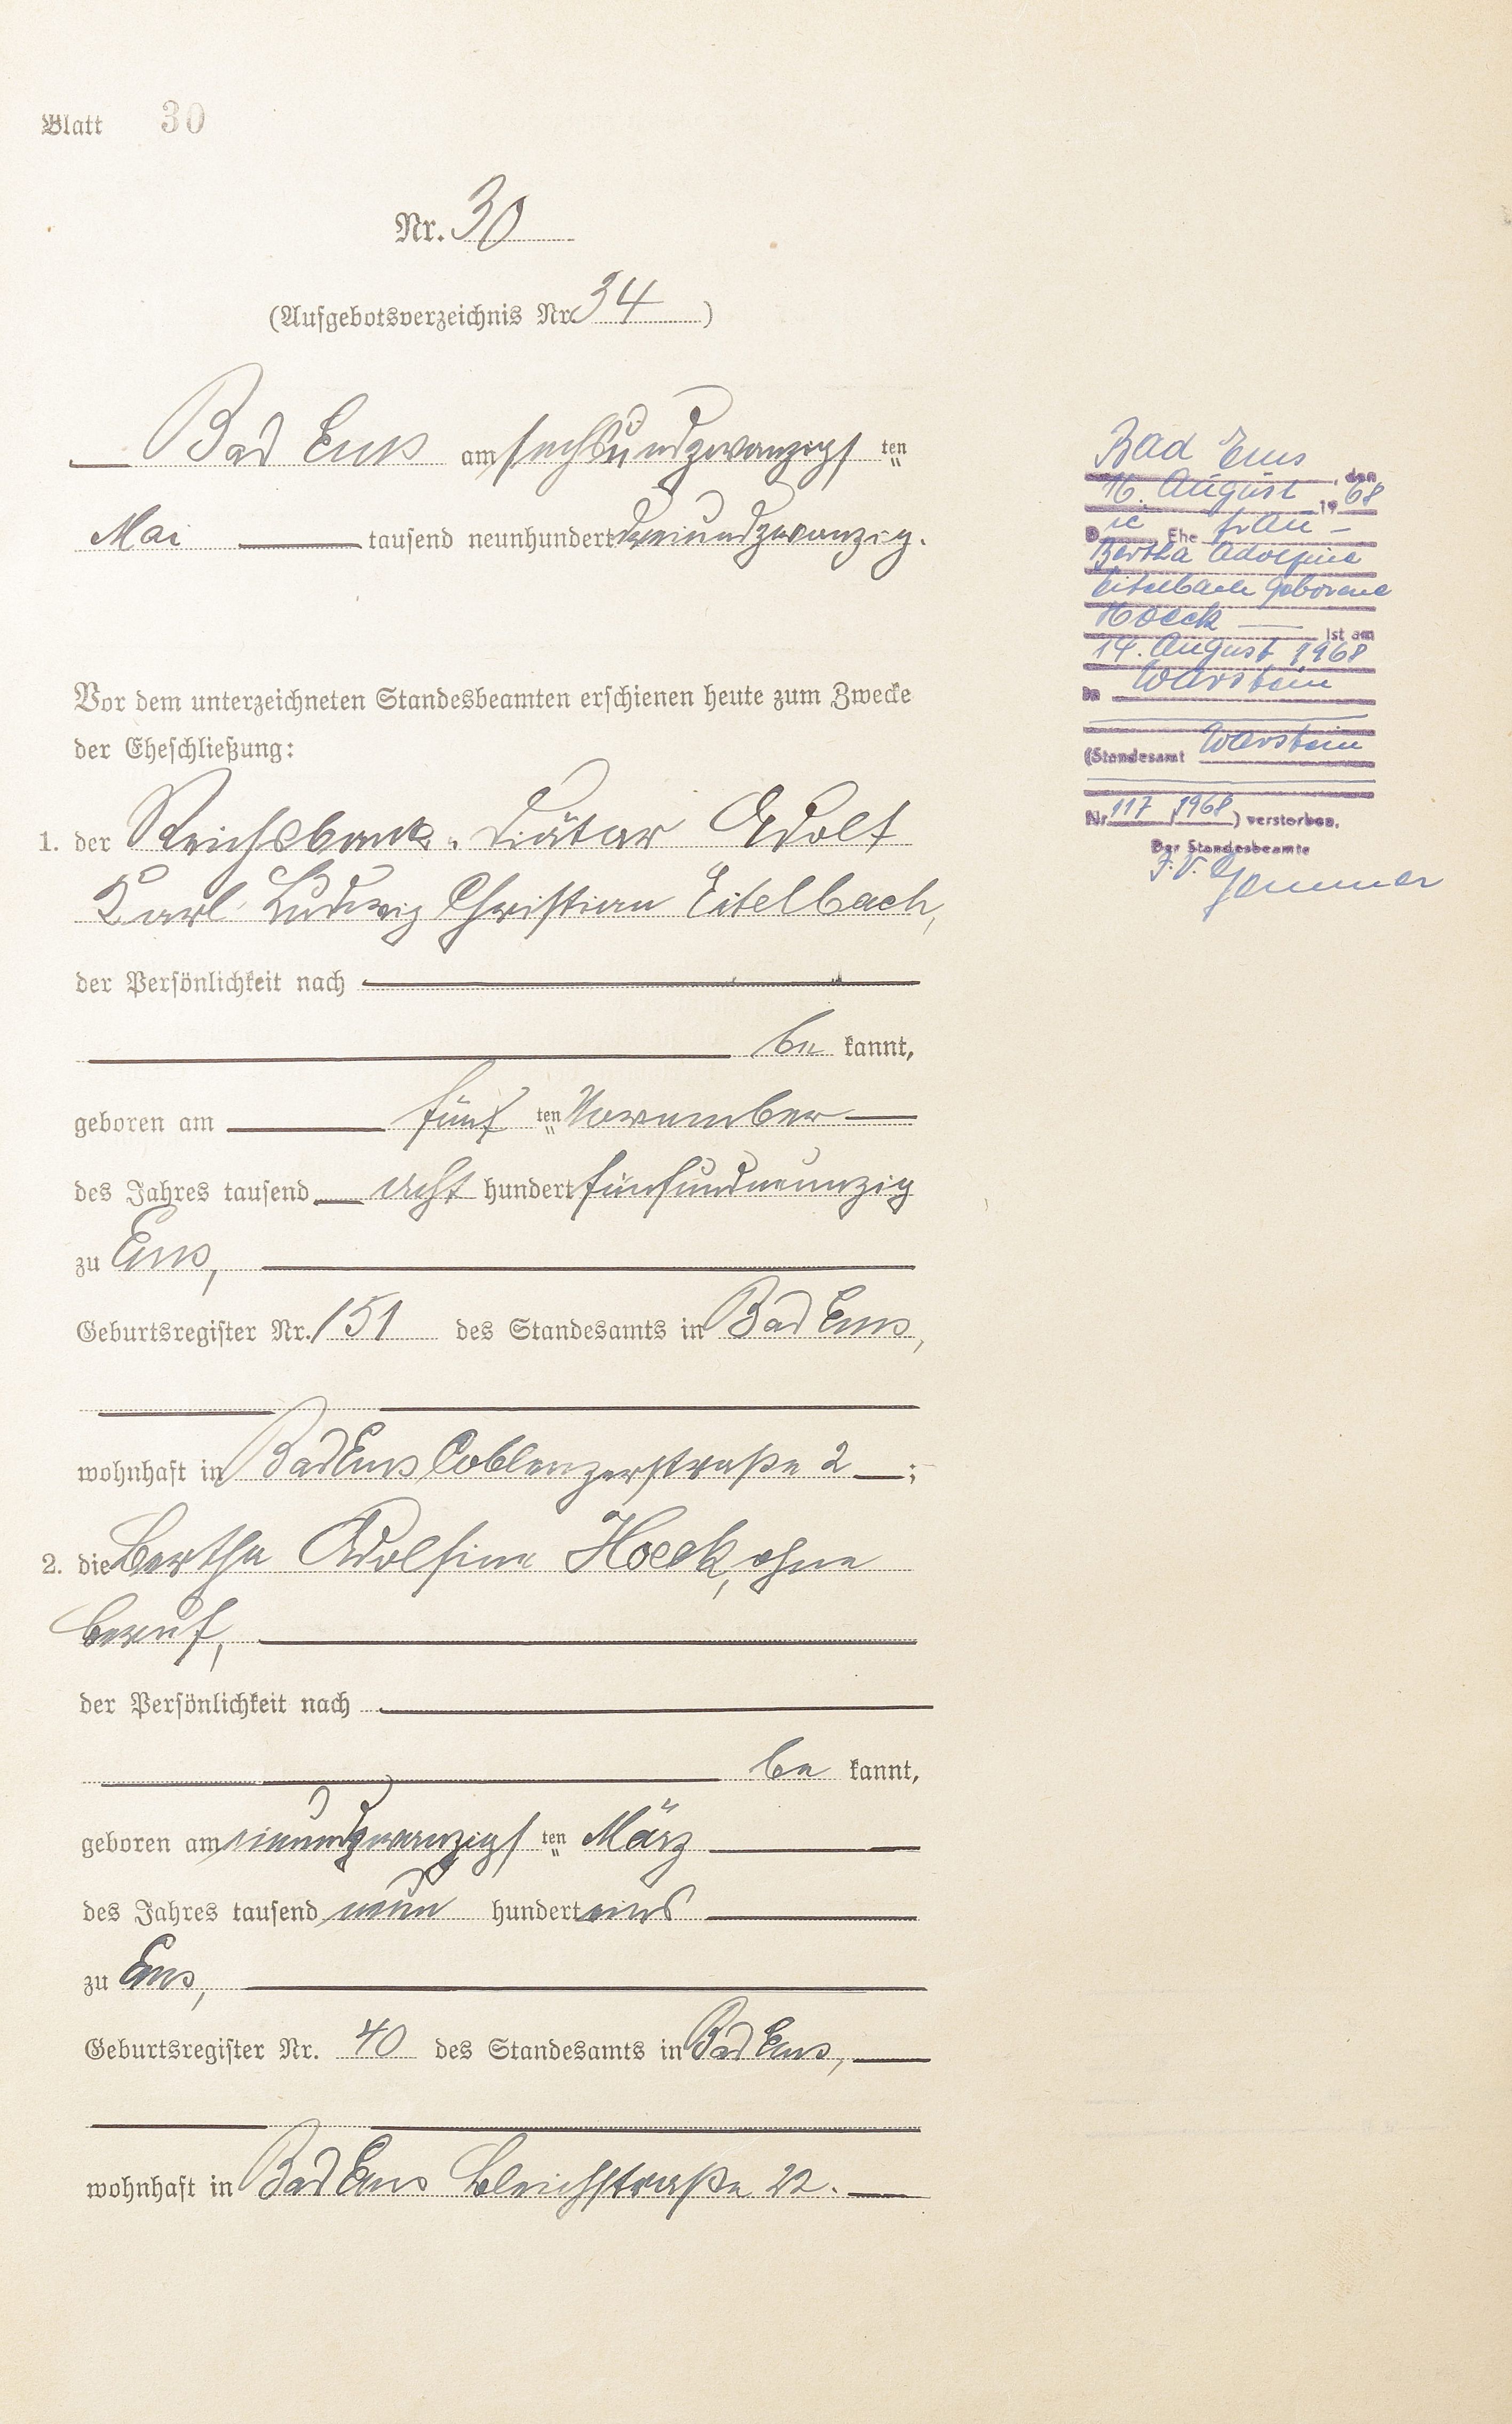 Blatt 30
Nr. 30
(Aufgebotsverzeichnis Nr. 34)
Bad Ems am sechsundzwanzigsten
Mai tausend neunhundert dreiundzwanzig.
Vor dem unterzeichneten Standesbeamten erschienen heute zum Zwecke
der Eheschließung:
1. der Reichsbank-Diätar Adolf
Karl Ludwig Christian Eitelbach,
der Persönlichkeit nach
be kannt,
geboren am fünf ten November
des Jahres tausend acht hundert fünfundneunzig
zu Ems,
Geburtsregister Nr. 151 des Standesamts in Bad Ems,
wohnhaft in Bad Ems Coblenzerstraße 2 ;
2. die Bertha Adolfine Hoeck, ohne
Beruf,
der Persönlichkeit nach
be kannt,
geboren am neunundzwanzigsten März
des Jahres tausend neun hundert eins
zu Ems,
Geburtsregister Nr. 40 des Standesamts in Bad Ems,
wohnhaft in Bad Ems Bleichstraße 22.
Bad Ems, den
16. August 1968
Die Ehe frau
Bertha Adolfine
Eitelbach geborene
Hoeck ist am
14. August 1968
in Warstein
(Standesamt Warstein
Nr. 117/1968) verstorben.
Der Standesbeamte
J.V.